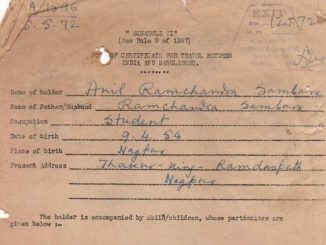 5.72
12.5.72
EXIT
" SCHEDULE VI "
(See Rule 9 of 1967)
FORM OF CERTIFICATE FOR TRAVEL BETWEEN
INDIA AND BANGLADESH.
Name of holder Anil Ramchandra Sambare
Name of Father/Husband Ramchandra Sambare
Occupation Student
Date of birth 9.4.54
Place of birth Nagpur
Present Address Ramdaspeth
Nagpur
The holder is accompanied by child/children, whose particulars are
given below :-